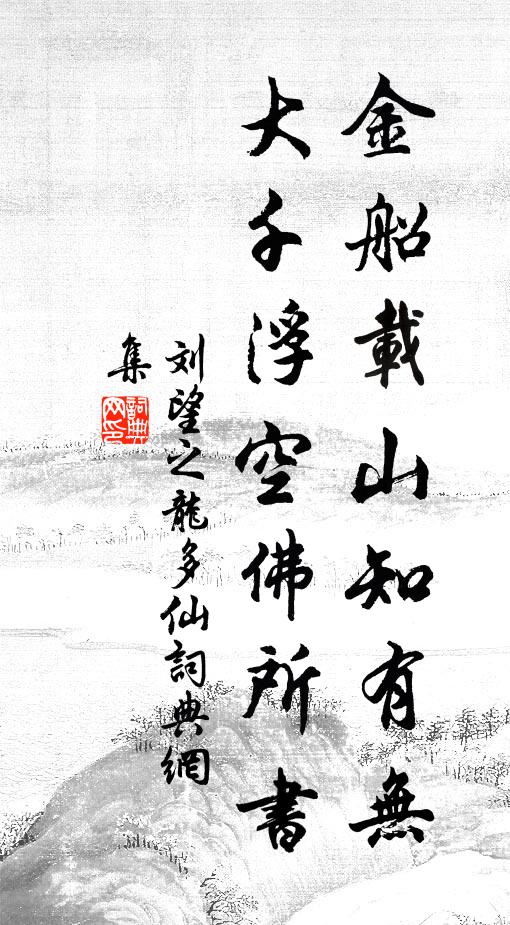 金船載山知有無
大千浮空佛所書
刘望之龍多仙詞典網
集
詞典
网印